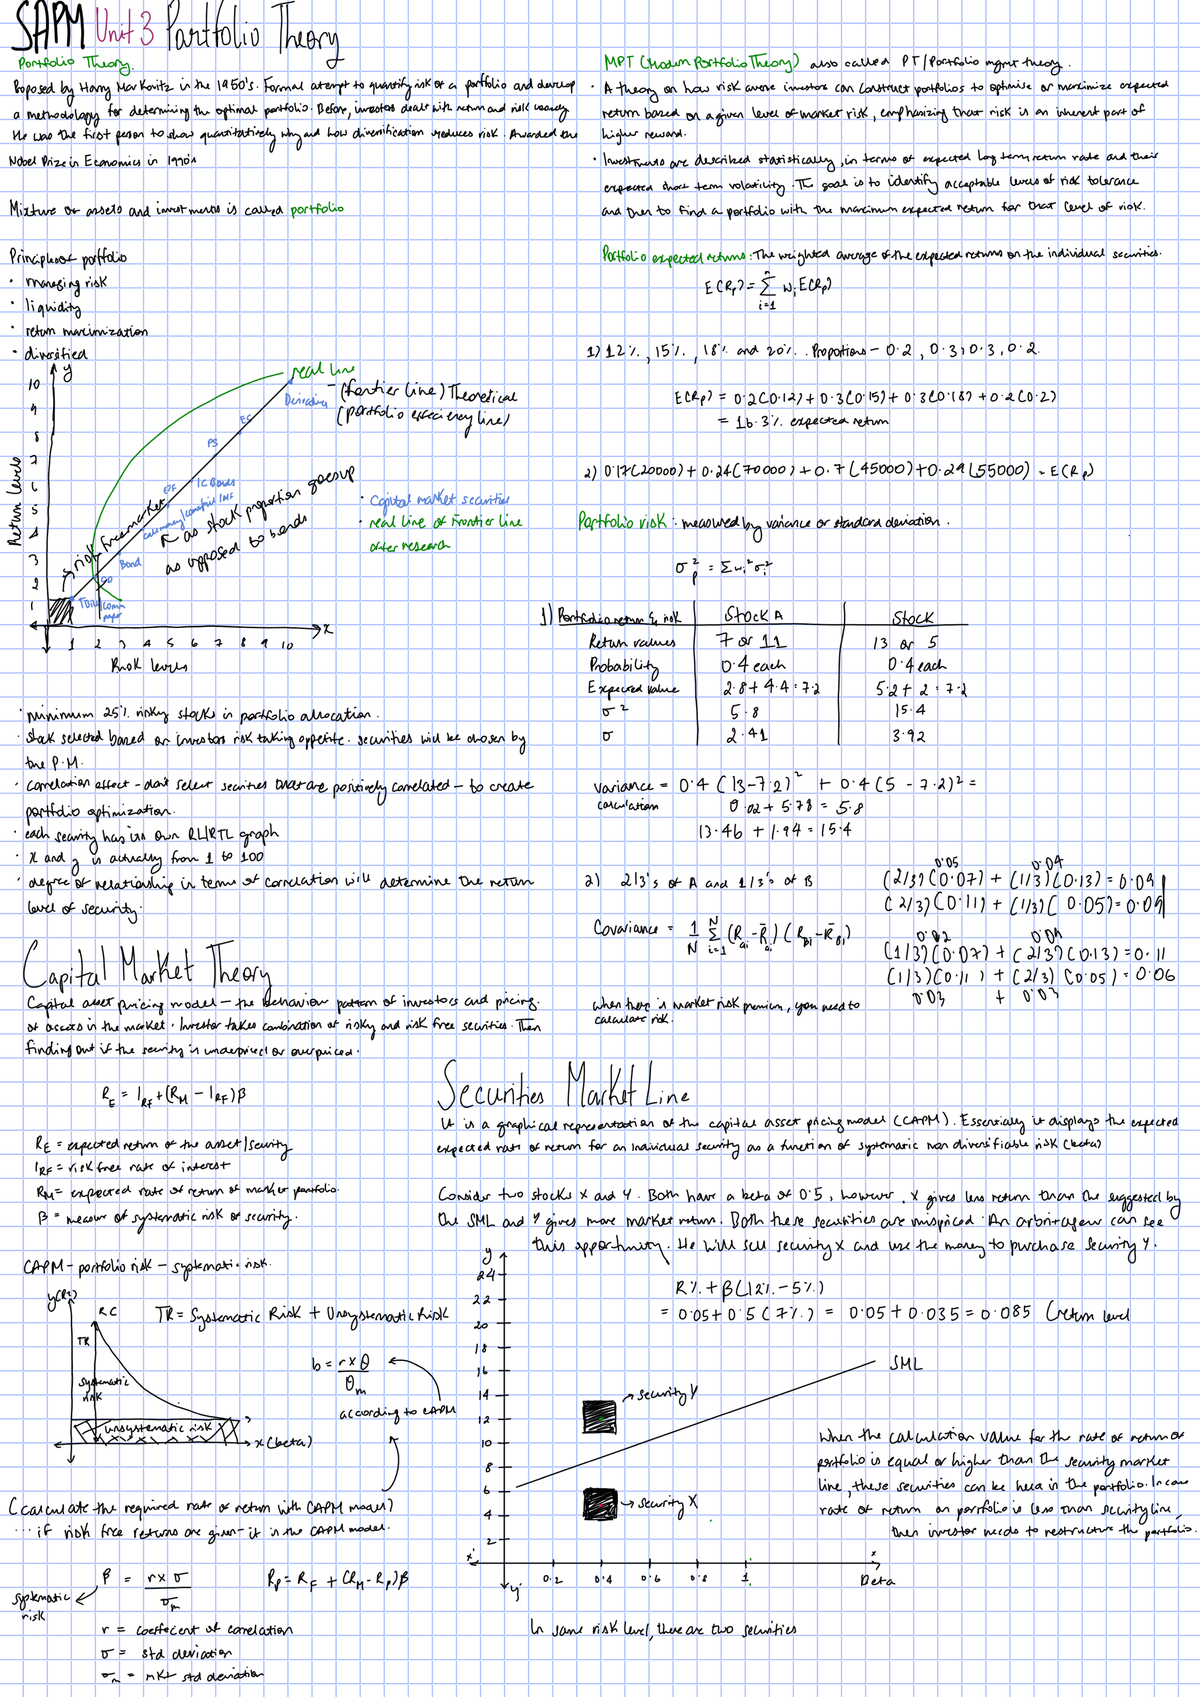 SAPM Unit 3 Portfolio Theory
Portfolio Theory.
Proposed by Harry Markovitz in the 1950's. Formal attempt to quantify risk of a portfolio and develop
a methodology for determining the optimal portfolio. Before, investors dealt with return and risk loosely
He was the first person to show quantitatively why and how diversification reduces risk. Awarded the
Nobel Prize in Economics in 1990's
Mixture of assets and investments is called portfolio
Principles of portfolio
• managing risk
• liquidity
• return maximization
• diversified
y
10
9
8
7
6
5
4
3
2
1
Return levels
1 2 3 4 5 6 7 8 9 10
x
Risk levels
real line
Derivatives
- (frontier line) Theoretical
(portfolio efficiency line)
EC
PS
IC Bonds
ETF
Bond
GD
T Bill/comm paper
→ risk free market
↖ as stock proportion goes up
as opposed to bonds
• Capital market securities
• real line of Frontier line
after research
• minimum 25% risky stocks in portfolio allocation.
• stock selected based on investors risk taking appetite. securities will be chosen by
the P.M.
• correlation effect - don't select securities that are positively correlated - to create
portfolio optimization.
• each security has its own RL/RTL graph
• x and y is actually from 1 to 100
• degree of relationship in terms of correlation will determine the return
level of security.
Capital Market Theory
Capital asset pricing model - the behaviour pattern of investors and pricing.
of assets in the market. Investor takes combination of risky and risk free securities. Then
finding out if the security is underpriced or overpriced.
R_E = I_RF + (R_M - I_RF)β
R_E = expected return of the asset/security
I_RF = risk free rate of interest
R_M = expected rate of return of market portfolio.
β = measure of systematic risk of security.
CAPM - portfolio risk - systematic risk.
RC
TR
systematic
risk
unsystematic risk
x (beta)
TR = Systematic Risk + Unsystematic Risk
b = r x θ / θm
according to CAPM
(calculate the required rate of return with CAPM model)
... if risk free returns are given - it is the CAPM model.
β = r x σ / σm
systematic
risk
Rp = R_F + (R_M - Rp)β
r = coeffecient of correlation
σ = std deviation
σm = mkt std deviation
MPT (Modern Portfolio Theory) also called PT/Portfolio mgmt theory.
• A theory on how risk averse investors can construct portfolios to optimise or maximize expected
return based on a given level of market risk, emphasizing that risk is an inherent part of
higher reward.
• Investments are described statistically, in terms of expected long term return rate and their
expected short term volatility. The goal is to identify acceptable levels of risk tolerance
and then to find a portfolio with the maximum expected return for that level of risk.
Portfolio expected returns: The weighted average of the expected returns on the individual securities.
E(Rp) = n Σ i=1 Wi E(Rp)
1) 12%, 15%, 18% and 20%. Proportions - 0.2, 0.3, 0.3, 0.2.
E(Rp) = 0.2(0.12) + 0.3(0.15) + 0.3(0.18) + 0.2(0.2)
= 16.3% expected return
2) 0.17(20000) + 0.24(70000) + 0.7(45000) + 0.29(55000) = E(Rp)
Portfolio risk: measured by variance or standard deviation.
σp² = Σwi²σi²
1) Portfolio return & risk Stock A Stock
Return values 7 or 11 13 or 5
Probability 0.4 each 0.4 each
Expected value 2.8 + 4.4 = 7.2 5.2 + 2 = 7.2
σ² 5.8 15.4
σ 2.41 3.92
variance = 0.4(13-7.2)² + 0.4(5-7.2)² =
calculation 0.02 + 5.78 = 5.8
13.46 + 1.94 = 15.4
2) 2/3's of A and 1/3's of B
0.05 0.04
(2/3)(0.07) + (1/3)(0.13) = 0.09
(2/3)(0.11) + (1/3)(0.05) = 0.09
0.02 0.09
(1/3)(0.07) + (2/3)(0.13) = 0.11
(1/3)(0.11) + (2/3)(0.05) = 0.06
0.03 + 0.03
Covariance = 1/N N Σ i=1 (Rai - R̄ai)(RBi - R̄Bi)
when there is market risk premium, you need to
calculate risk.
Securities Market Line
It is a graphical representation of the capital asset pricing model (CAPM). Essentially it displays the expected
expected rate of return for an individual security as a function of systematic non diversifiable risk (beta)
Consider two stocks X and Y. Both have a beta of 0.5, however, X gives less return than the suggested by
the SML and Y gives more market return. Both these securities are mispriced. An arbitrageur can see
this opportunity. He will sell security X and use the money to purchase security Y.
R% + β(12% - 5%)
= 0.05 + 0.5(7%) = 0.05 + 0.035 = 0.085 (return level
y
24
22
20
18
16
14
12
10
8
6
4
2
x'
y'
0.2 0.4 0.6 0.8 1
x
Beta
SML
→ security Y
→ security X
When the calculation value for the rate of return of
portfolio is equal or higher than the security market
line, these securities can be held in the portfolio. In case
rate of return on portfolio is less than security line,
then investor needs to restructure the portfolio.
In same risk level, there are two securities